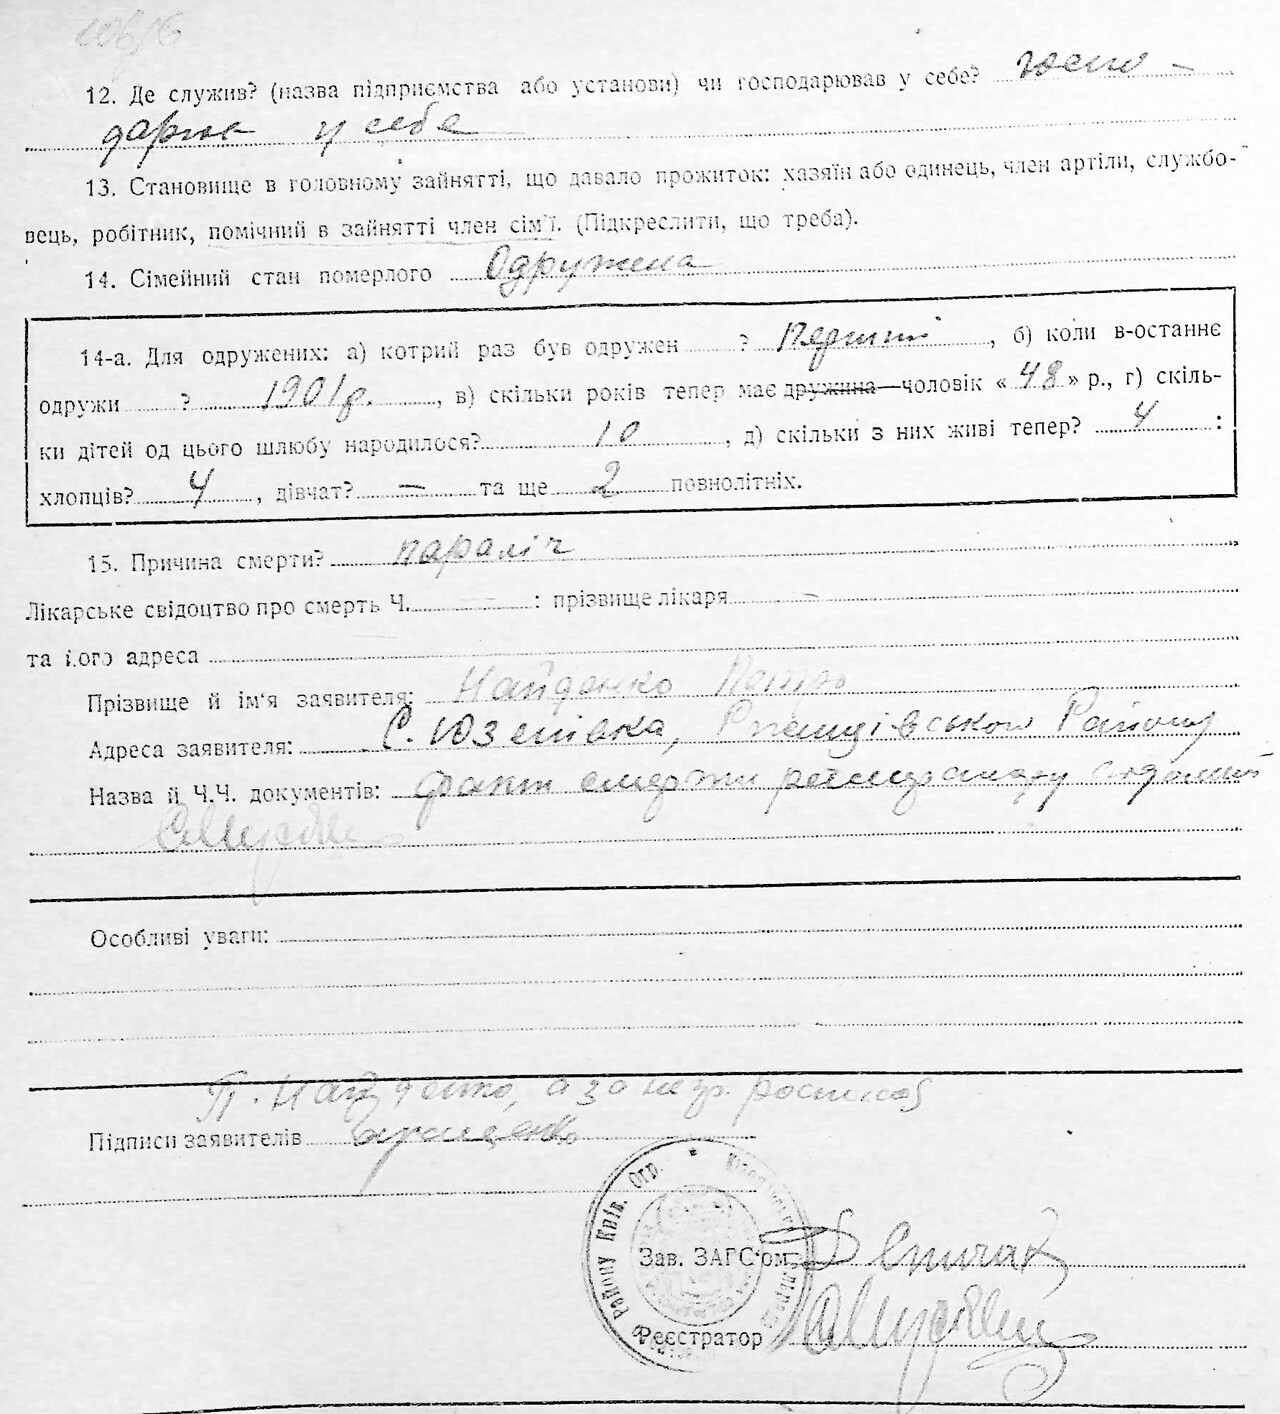 12. Де служив? (назва підприємства або установи) чи господарював у себе? госпо-
дарюв у себе
13. Становище в головному зайнятті, що давало прожиток: хазяїн або одинець, член артіли, службо-
вець, робітник, помічний в зайнятті член сім'ї. (Підкреслити, що треба).
14. Сімейний стан померлого Одружена
14-а. Для одружених: а) котрий раз був одружен ? Перший, б) коли в-останнє
одружи ? 1901 р., в) скільки років тепер має дружина—чоловік « 48 » р., г) скіль-
ки дітей од цього шлюбу народилося? 10, д) скільки з них живі тепер? 4 :
хлопців? 4, дівчат? — та ще 2 повнолітніх.
15. Причина смерти? параліч
Лікарське свідоцтво про смерть Ч. — : прізвище лікаря —
та його адреса
Прізвище й ім'я заявителя: Найденко Петро
Адреса заявителя: С. Юзепівка, Району
Назва й Ч.Ч. документів: факт смерти
Особливі уваги:
П. Найденко, а за негр.
Підписи заявителів
Району Київ. Окр. *
Зав. ЗАГС'ом
Реєстратор